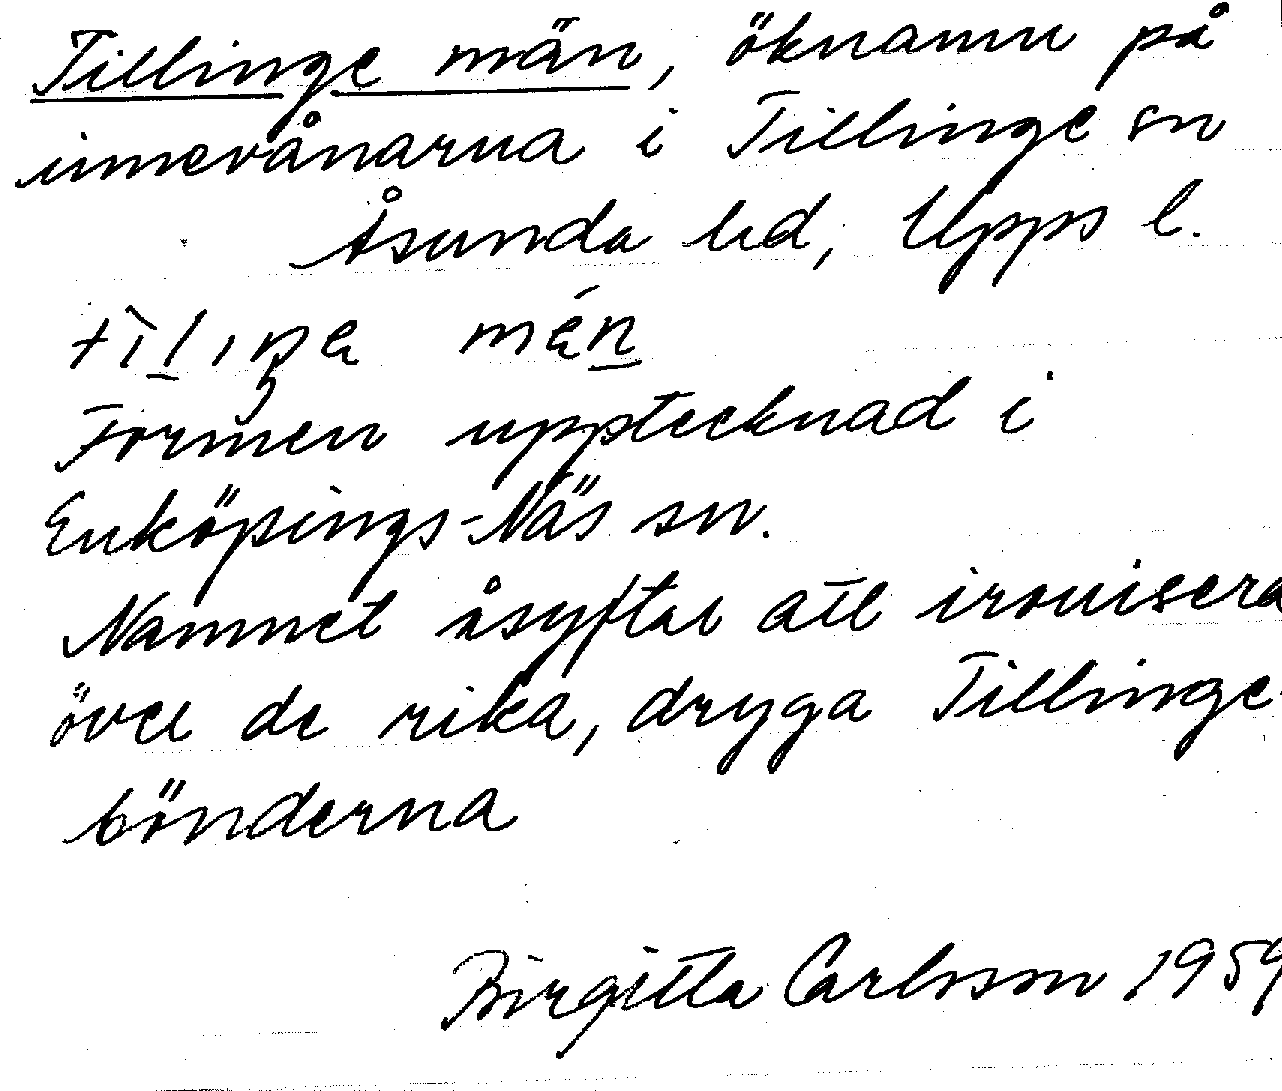 Tillinge män, öknamn på
innevånarna i Tillinge sn
Åsunda hd, Upps l.
Formen upptecknad i
Enköpings-Näs sn.
Namnet åsyftar att ironisera
över de rika, dryga Tillinge
bönderna
Birgitta Carlsson 1959